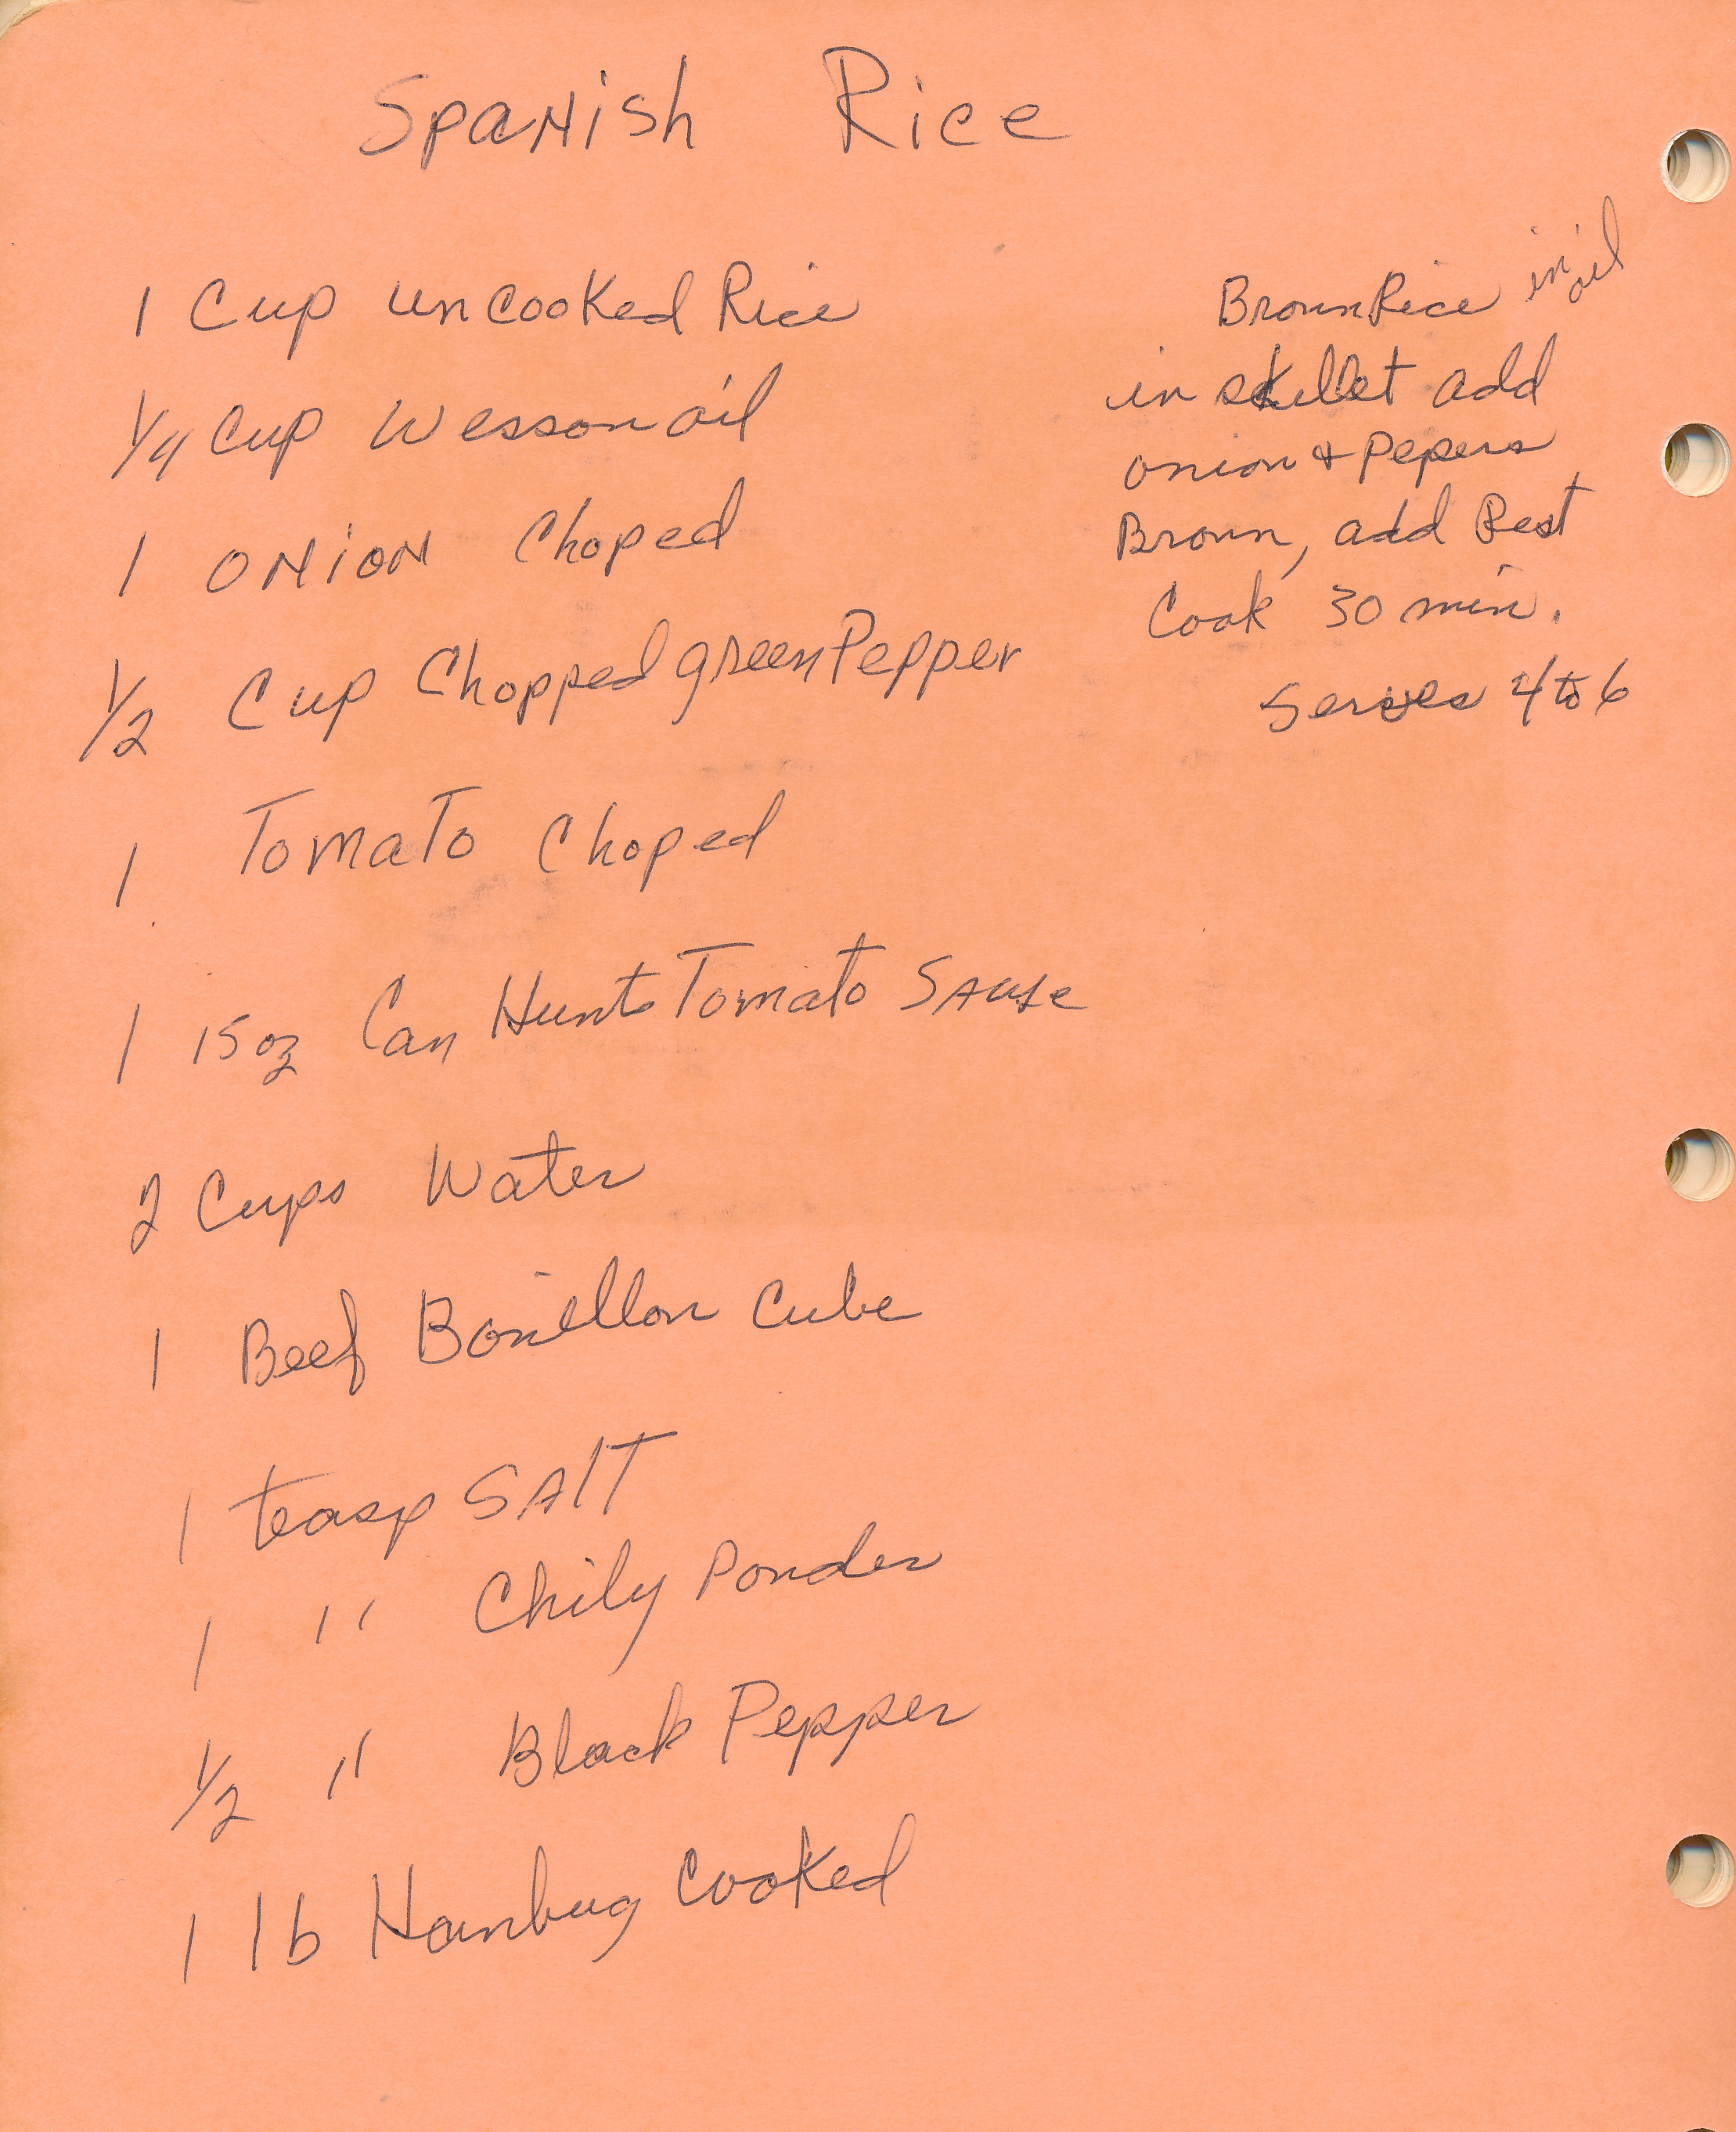 Spanish Rice
1 Cup uncooked Rice
1/4 Cup Wesson oil
1 ONiON Choped
1/2 Cup Chopped green Pepper
1 Tomato Choped
1 15 oz Can Hunts Tomato Sause
2 Cups Water
1 Beef Bouillon Cube
1 teasp SAlT
1 " Chily Powder
1/2 " Black Pepper
1 lb Hambug Cooked
Brown Rice in oil
in skillet add
onion & Pepers
Brown, add Rest
Cook 30 min.
Serves 4 to 6